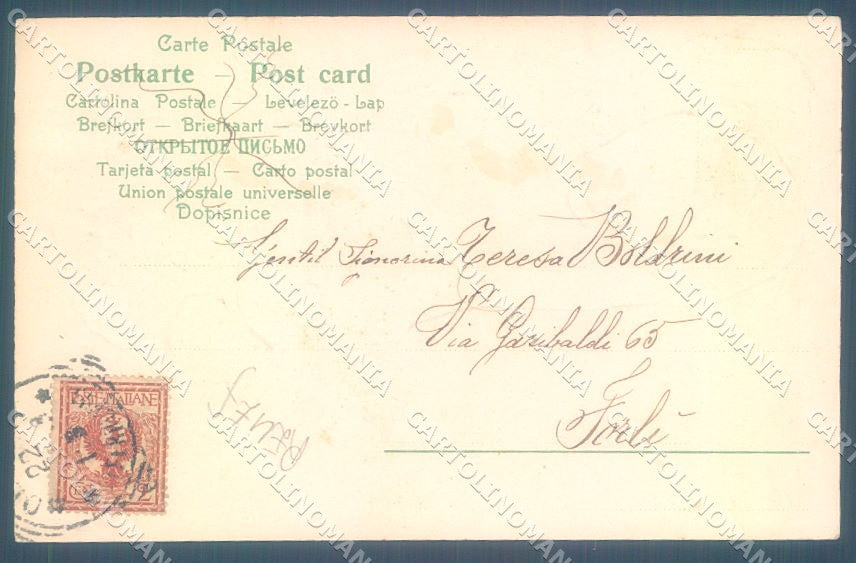 Carte Postale
Postkarte — Post card
Cartolina Postale — Levelezö-Lap
Brefkort — Briefkaart — Brevkort
ОТКРЫТОЕ ПИСЬМО
Tarjeta postal — Carto postal
Union postale universelle
Dopisnice
Gentil Signorina Teresa Boldrini
Via Garibaldi 65
Forlì
POSTE ITALIANE
22
CARTOLINOMANIA